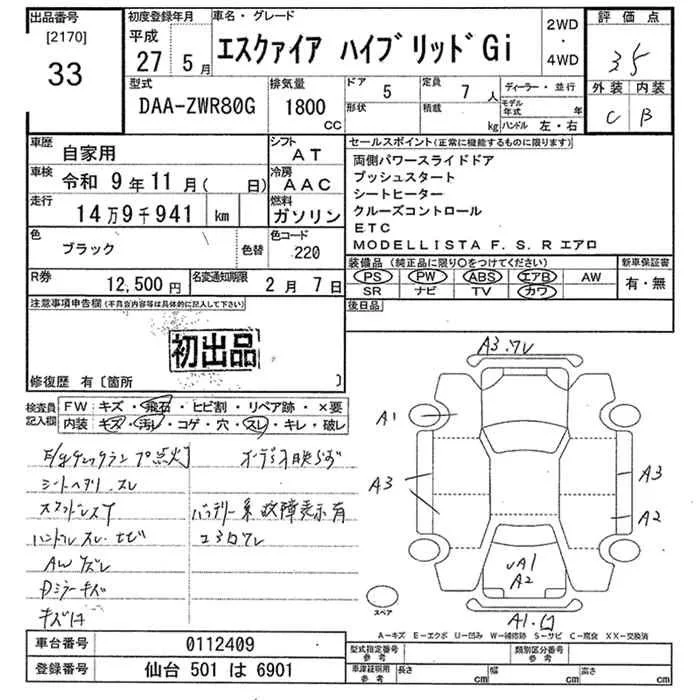 出品番号
[2170]
33
初度登録年月
平成
27 5月
車名・グレード
エスクァイア ハイブリッドGi
2WD
・
4WD
評価点
35
外装 内装
C B
型式
DAA-ZWR80G
排気量
1800
CC
ドア
5
形状
定員
7人
積載
kg
ディーラー・並行
モデル年式 年
ハンドル 左・右
車歴
自家用
シフト
AT
車検
令和 9年11月( 日)
冷房
AAC
走行
14万9千941 km
燃料
ガソリン
色
ブラック
色替
色コード
220
R券
12,500円
名変通知期限
2月7日
セールスポイント(正常に機能するものに限ります)
両側パワースライドドア
プッシュスタート
シートヒーター
クルーズコントロール
ETC
MODELLISTA F.S.Rエアロ
装備品(純正品に限り○をつけてください)
PS PW ABS エアB AW
SR ナビ TV カワ
新車保証書
有・無
後日品
注意事項申告欄(不具合内容等は具体的に記入して下さい)
初出品
修復歴 有〔箇所 〕
検査員記入欄
FW キズ・飛石・ヒビ割・リペア跡・×要
内装 キズ・汚レ・コゲ・穴・スレ・キレ・破レ
オーディオ映らず
シートヘタリ スレ
バッテリー系故障表示有
ハンドルスレ
AWキズ
Dミラーキズ
A3.ワレ
A1
A3
A3
A2
A1
A2
A1.
スペア
A-キズ E-エクボ U-凹み W-補修跡 S-サビ C-腐食 XX-交換済
車台番号
0112409
登録番号
仙台 501 は 6901
型式指定番号
参考
類別区分番号
参考
車庫証明用
参考
長さ cm 幅 cm 高さ cm